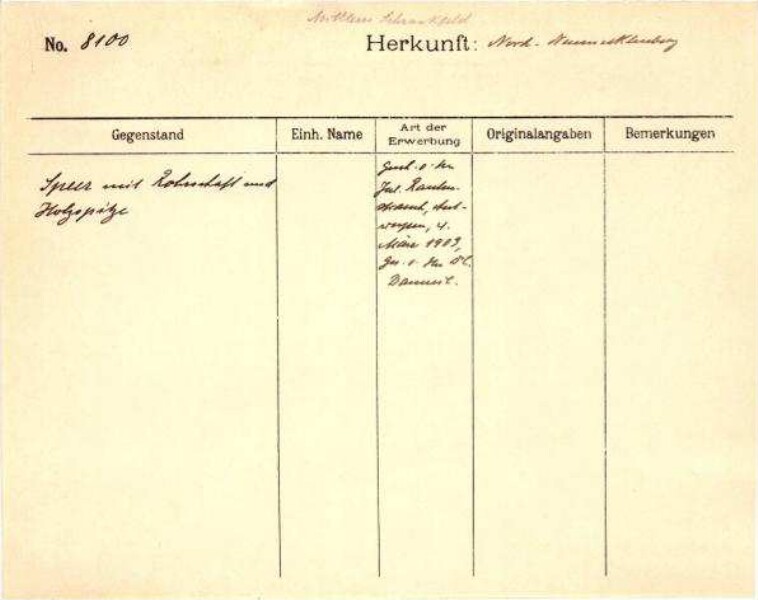 Mittleres Schrankfeld
No. 8100
Herkunft: Nord-Neumecklenburg
Gegenstand
Einh. Name
Art der Erwerbung
Originalangaben
Bemerkungen
Speer mit Rohrschaft und
Holzspitze
Gesch. v. Hn
Jul. Rauten-
strauch, Ant-
werpen, 4.
März 1909,
Ges. v. Hn
Danneil.